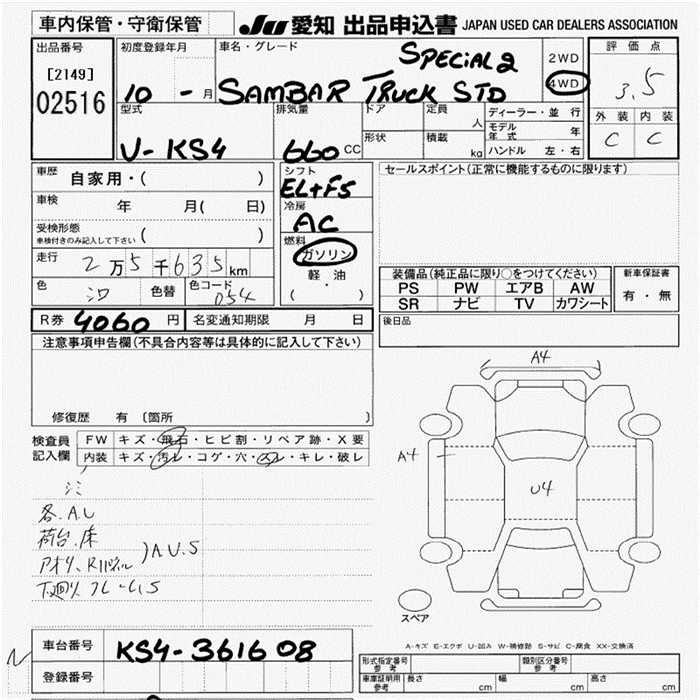 車内保管・守衛保管 JU 愛知 出品申込書 JAPAN USED CAR DEALERS ASSOCIATION
出品番号 初度登録年月 車名・グレード SPECIAL2 2WD 評価点
[2149] 10 - 月 SAMBAR TRUCK STD 4WD 3.5
02516
型式 排気量 ドア 定員 人 ディーラー・並行 外装 内装
U-KS4 660 CC 形状 積載 kg モデル年式 年 C C
ハンドル 左・右
車歴 自家用・( ) シフト セールスポイント(正常に機能するものに限ります)
EL+F5
車検 年 月( 日) 冷房
AC
受検形態 ( )
車検付きのみ記入して下さい
燃料
走行 2万5千635km ガソリン
軽油 装備品(純正品に限り○をつけてください) 新車保証書
色 色替 色コード 054 (・) PS PW エアB AW 有・無
SR ナビ TV カワシート
R券 4060 円 名変通知期限 月 日 後日品
注意事項申告欄(不具合内容等は具体的に記入して下さい)
A4
修復歴 有 〔箇所
検査員 FW キズ・飛石・ヒビ割・リペア跡・X要
記入欄 内装 キズ・汚レ・コゲ・穴・スレ・キレ・破レ
A4
U4
各.A.U
荷台.床
アオリ、Rパネル )A.U.S
下廻り
スペア
車台番号 KS4-361608
A-キズ E-エクボ U-凹み W-補修跡 S-サビ C-腐食 XX-交換済
形式指定番号 参考 類別区分番号 参考
登録番号 車庫証明用 参考 長さ cm 幅 cm 高さ cm